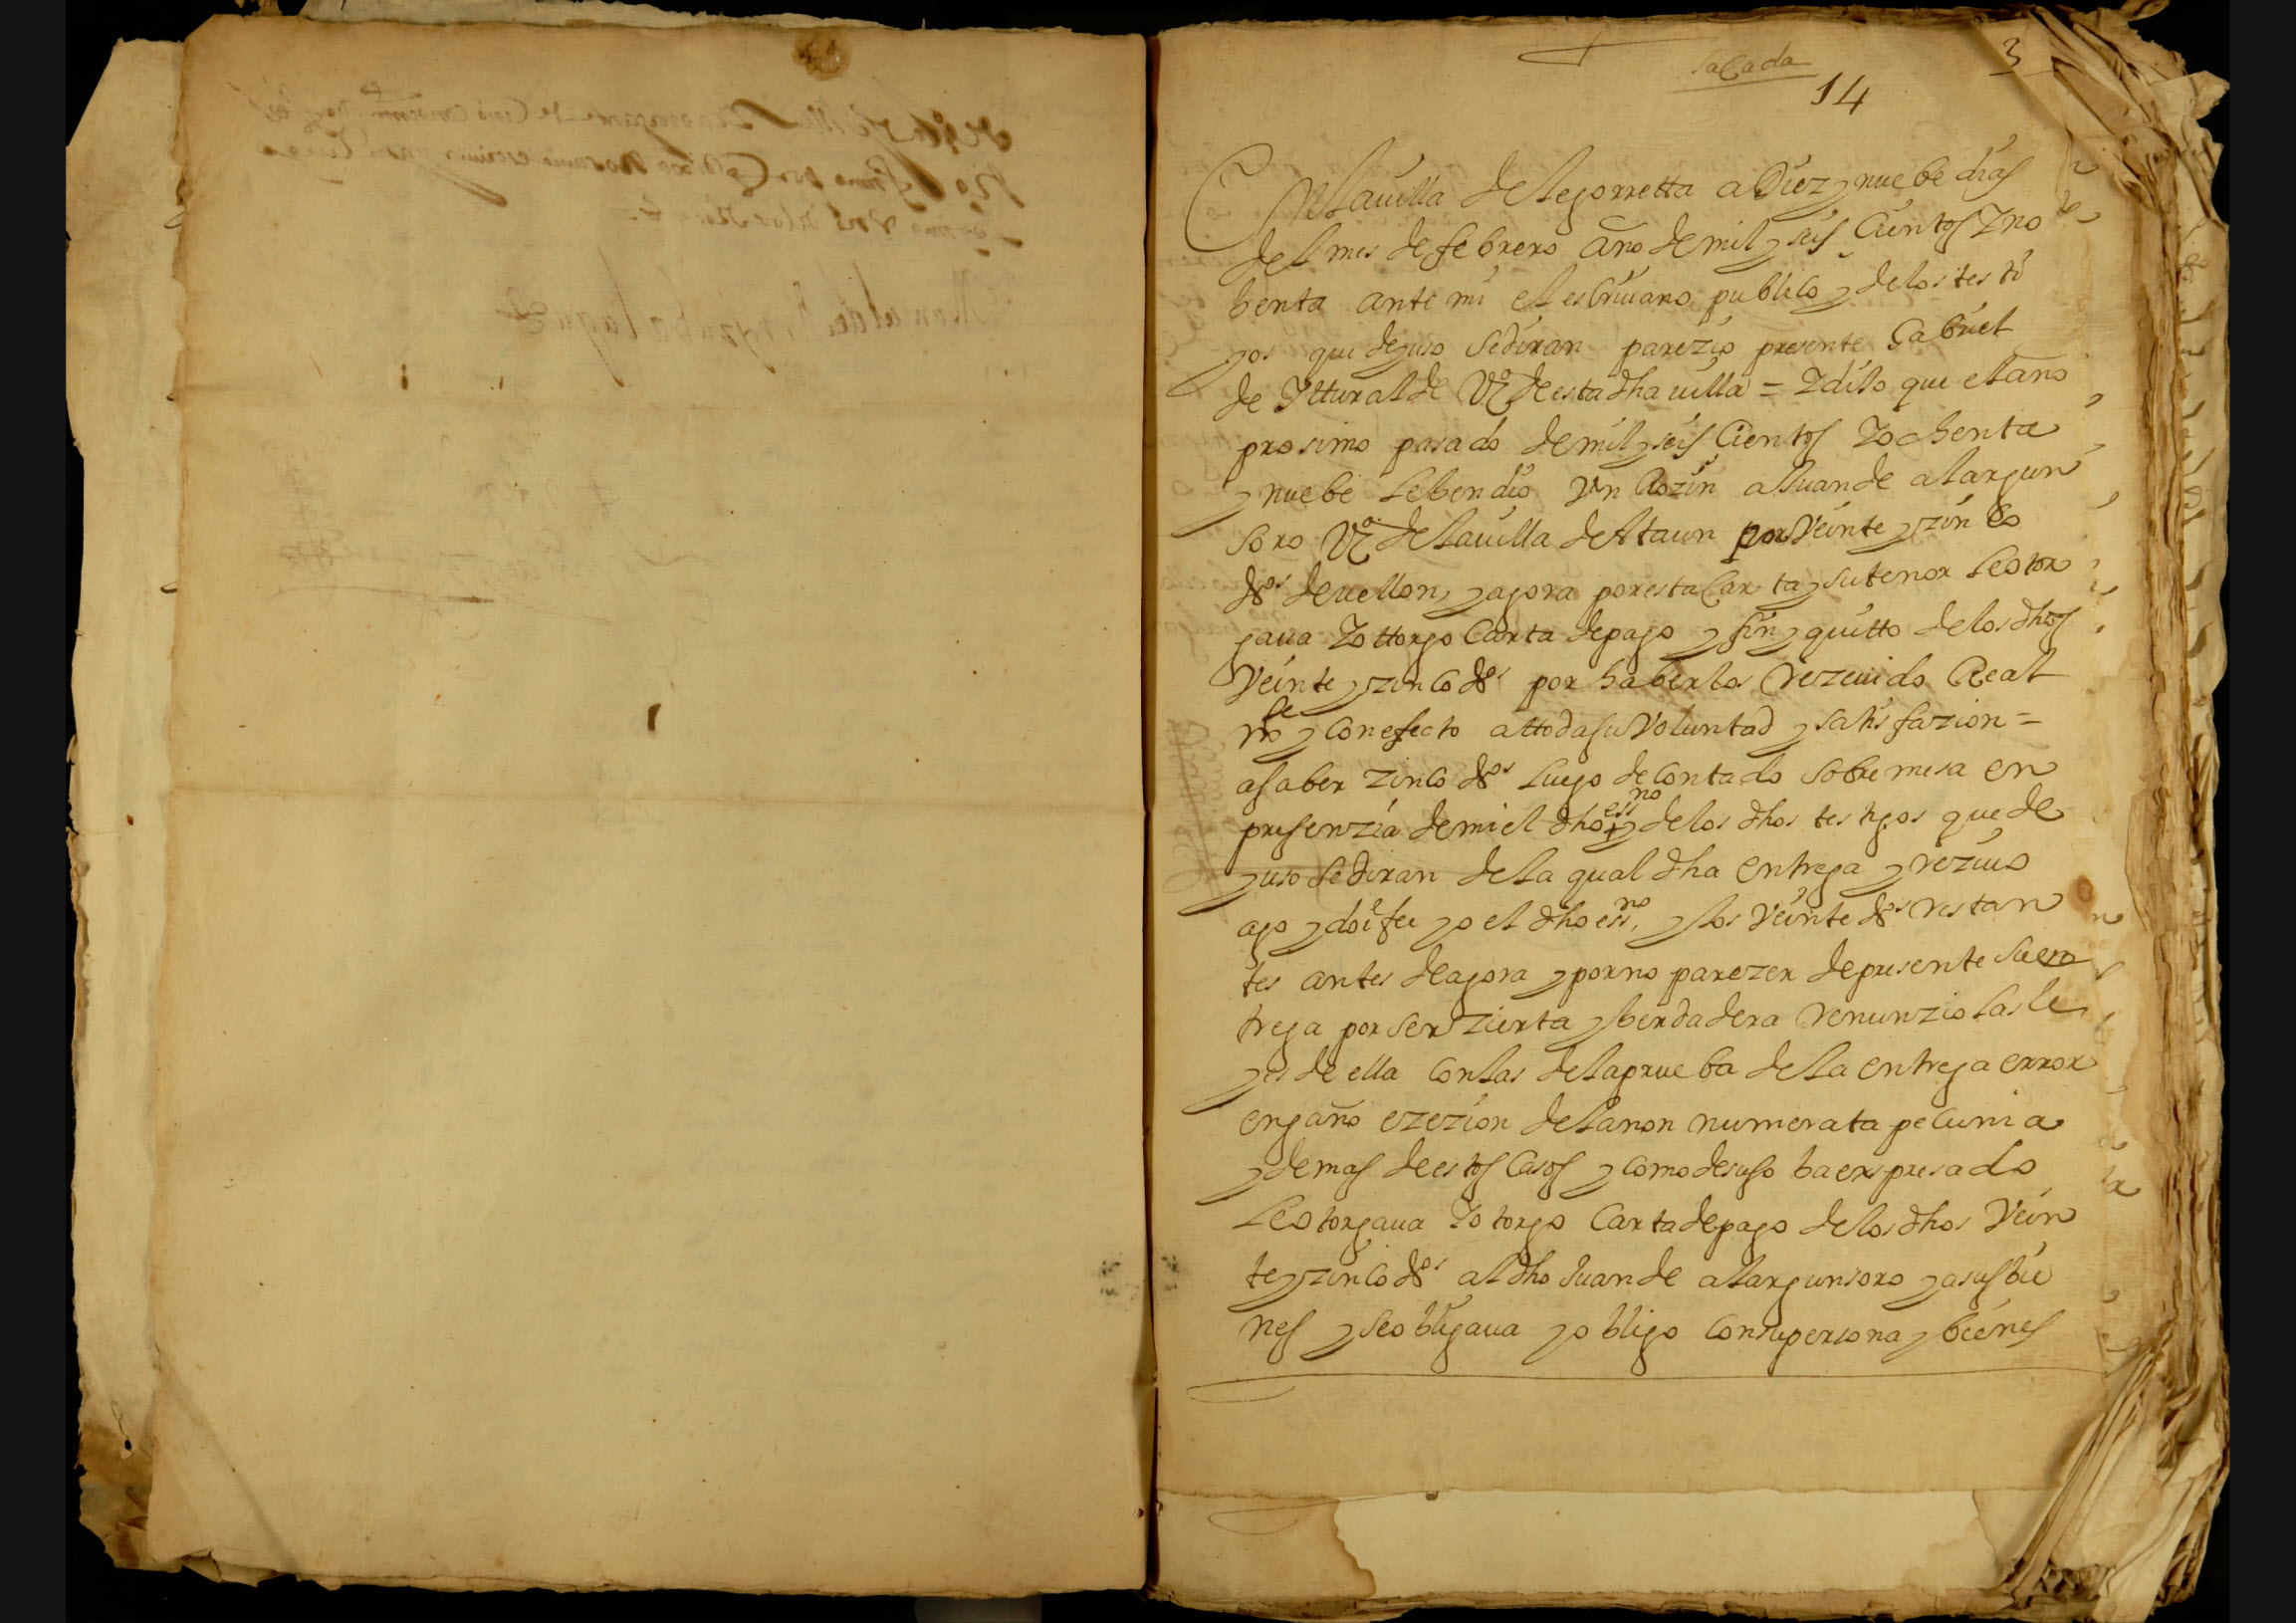 sacada
3
14
En la uilla de Legorretta a Diez y nuebe dias
del mes de febrero año de mil y seis Cientos Y no
benta ante mi el escriuano publico y de los testi
gos que de yuso se diran parezio presente Gabriel
de Ytturalde Vº de esta dha uilla = Y dixo que el año
prosimo pasado de mil y seis Cientos Y ochenta
y nuebe le bendio Vn Rozin a Juan de alargun
soro Vº de la uilla de Ataun por Veinte y zinco
dos de uellon, y agora por esta Carta y su tenor le otor
gaua Y ottorgo Carta de pago y fin y quitto de los dhos
Veinte y zinco dos por haberlos rezeuido Real
mte y con efecto a ttoda su Voluntad y satisfazion =
a saber zinco dos luego de contado sobre mesa en
presenzia de mi el dho essno y de los dhos testigos que de
yuso se diran de la qual dha entrega y reziuo
ago y doi fee yo el dho essno, y los Veinte dos restan
tes antes de agora y por no parezer de presente su en
trega por ser zierta y berdadera renunzio las le
yes de ella con las de la prueba de la entrega error
engaño ezezion de la non numerata pecunia
y demas de estos Casos y como desuso ba expresado
le otorgaua Y otorgo Carta de pago de los dhos Vein
te y zinco dos al dho Juan de alargunsoro y a sus bie
nes y se obligaua y obligo con su persona y bienes